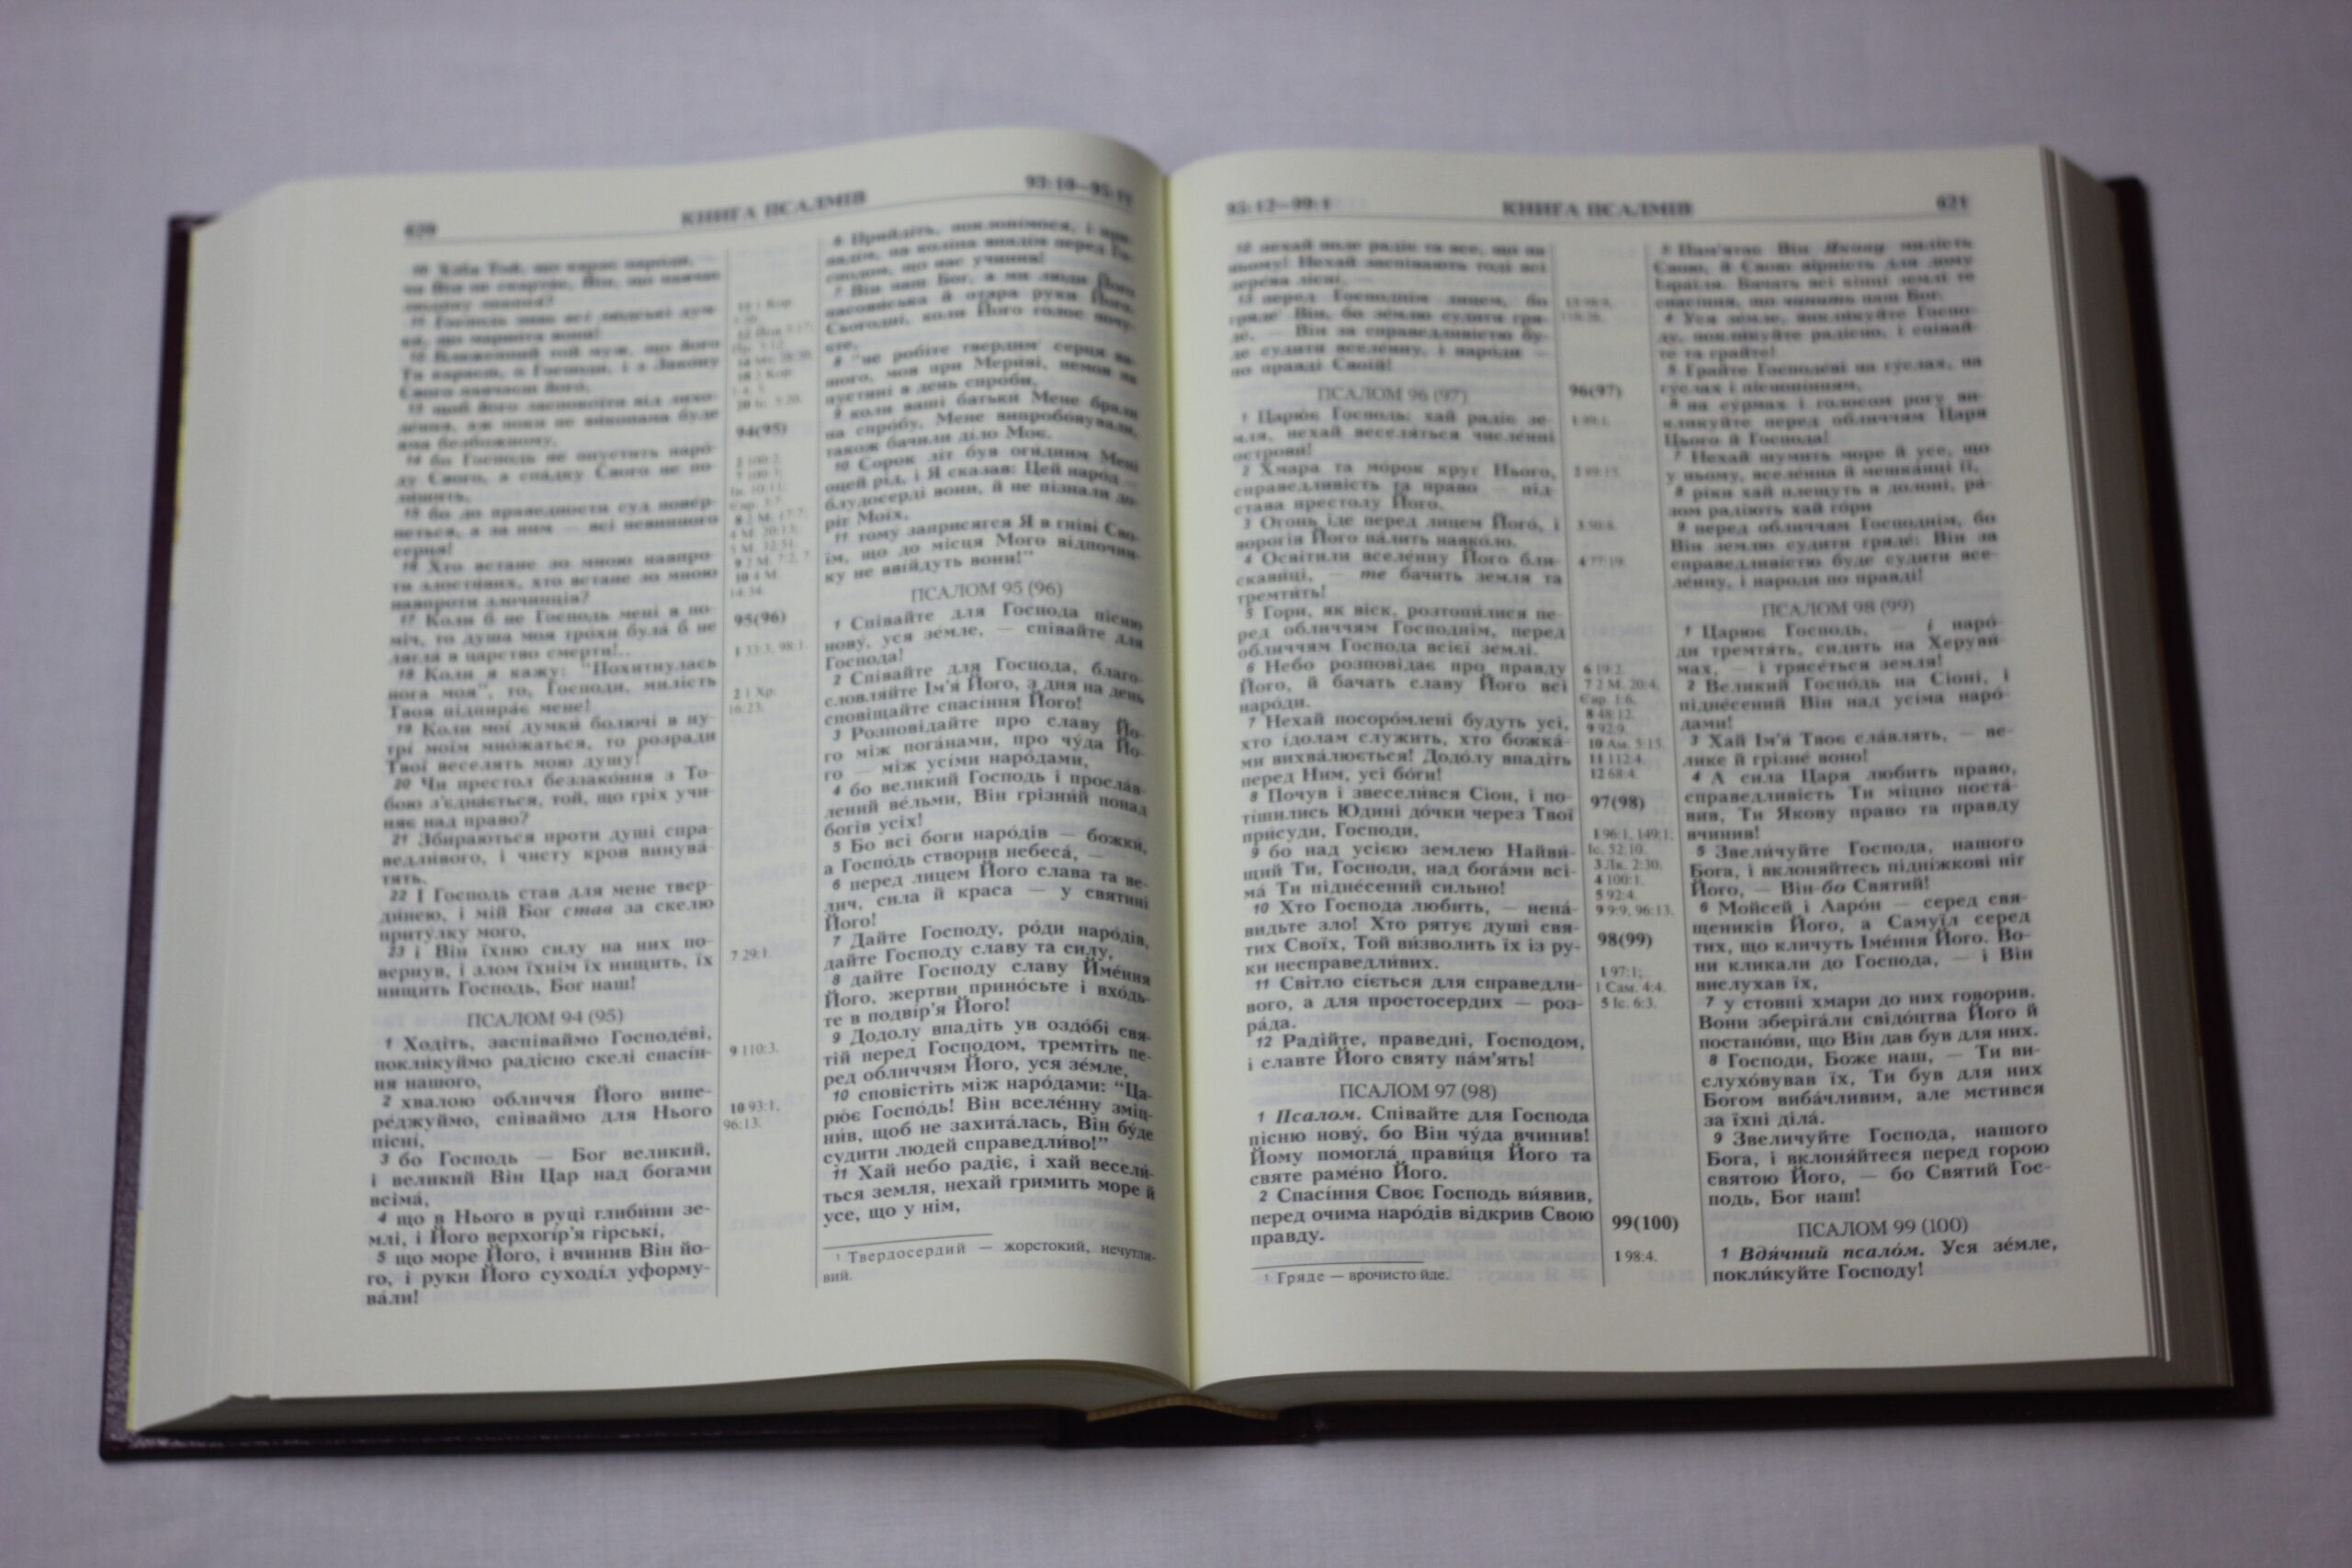 620 КНИГА ПСАЛМІВ 93:10—95:11
10 Хіба Той, що карає народи,
чи Він не скартає, Він, що навчає
людину знання?
11 Господь знає всі людські дум-
ки, що марнота вони!
12 Блаженний той муж, що його
Ти караєш, о Господи, і з Закону
Свого навчаєш його,
13 щоб його заспокоїти від лихо-
ле́ння, аж поки не ви́копана буде
яма безбожному,
14 бо Господь не опустить наро́-
ду Свого, а спа́дку Свого не по-
ли́шить,
15 бо до праведности суд повер-
неться, а за ним — всі невинного
серця!
16 Хто встане зо мною навпро-
ти злости́вих, хто встане зо мною
навпроти злочинців?
17 Коли б не Господь мені в по-
міч, то душа моя тро́хи була́ б не
лягла́ в царство смерти!..
18 Коли я кажу: "Похитнулась
нога моя", то, Господи, милість
Твоя підпира́є мене!
19 Коли мої думки́ болючі в ну-
трі́ моїм мно́жаться, то розради
Твої веселять мою душу!
20 Чи престол беззако́ння з То-
бою з'єдна́ється, той, що гріх учи-
няє над право?
21 Збираються проти душі спра-
ведли́вого, і чисту кров винува́-
тять.
22 І Господь став для мене твер-
ди́нею, і мій Бог став за скелю
приту́лку мого,
23 і Він їхню силу на них по-
вернув, і злом їхнім їх нищить, їх
нищить Господь, Бог наш!
ПСАЛОМ 94 (95)
1 Ходіть, заспіваймо Господе́ві,
покли́куймо радісно скелі спасі́н-
ня нашого,
2 хвалою обличчя Його випе-
ре́джуймо, співаймо для Нього
пісні́,
3 бо Господь — Бог великий,
і великий Він Цар над богами
всіма́,
4 що в Нього в руці глиби́ни зе-
млі, і Його верхогі́р'я гірські́,
5 що море Його, і вчинив Він йо-
го, і руки Його суходіл уформу-
ва́ли!
94(95)
95(96)
1 33:3, 98:1.
2 1 Хр.
16:23.
7 29:1.
9 110:3.
10 93:1,
96:13.
6 Прийдіть, поклоні́мося, і при-
па́дім, на коліна впаді́м перед Го-
сподом, що нас учинив!
7 Він наш Бог, а ми люди Його
пасови́ська й отара руки Його.
Сьогодні, коли Його голос почу-
єте,
8 "не робіте тверди́м серця ва-
шого, мов при Мериві, немов на
пустині в день спро́би,
9 коли ваші батьки Мене брали
на спробу, Мене випробо́вували,
також бачили діло Моє.
10 Сорок літ був оги́дним Мені
оцей рід, і Я сказав: Цей наро́д —
блудосерді вони, й не пізнали до-
рі́г Моїх,
11 тому́ заприсягся Я в гніві Сво-
їм, що до місця Мого відпочин-
ку не ввійдуть вони!"
ПСАЛОМ 95 (96)
1 Співайте для Господа пісню
нову́, уся зе́мле, — співайте для
Господа!
2 Співайте для Господа, благо-
словля́йте Ім'я Його, з дня на день
спові́щайте спасі́ння Його!
3 Розповідайте про славу Йо-
го між пога́нами, про чу́да Йо-
го — між усіми наро́дами,
4 бо великий Господь і просла́в-
лений ве́льми, Він грізни́й понад
богів усіх!
5 Бо всі боги наро́дів — божки́,
а Госпо́дь створив небеса́, —
6 перед лицем Його слава та ве-
лич, сила й краса — у святині
Його!
7 Дайте Господу, ро́ди наро́дів,
дайте Господу славу та силу,
8 дайте Господу славу Йме́ння
Його, жертви прино́сьте і вхо́дь-
те в подві́р'я Його!
9 Додолу впадіть ув оздо́бі свя-
ті́й перед Господом, тремтіть пе-
ред обличчям Його, уся зе́мле,
10 сповістіть між наро́дами: "Ца-
рює Госпо́дь! Він вселе́нну зміц-
ни́в, щоб не захита́лась, Він бу́де
судити людей справедли́во!"
11 Хай небо радіє, і хай весели́-
ться земля, нехай гримить море й
усе, що у нім,
1 Твердосердий — жорстокий, нечутли-
вий.
95:12—99:1 КНИГА ПСАЛМІВ 621
12 нехай поле радіє та все, що на
ньому! Нехай заспівають тоді всі
дере́ва лісні́, —
13 перед Господнім лицем, бо
гряде́ Він, бо зе́млю судити гря-
де́, — Він за справедливістю бу́-
де судити вселе́нну, і наро́ди —
по правді Своїй!
ПСАЛОМ 96 (97)
1 Царює Господь: хай радіє зе-
мля, нехай веселя́ться числе́нні
острови́!
2 Хмара та мо́рок круг Нього,
справедливість та право — під-
става престолу Його.
3 Огонь іде перед лицем Його́, і
ворогів Його па́лить навко́ло.
4 Освітили вселе́нну Його бли-
скави́ці, — те бачить земля та
тремти́ть!
5 Гори, як віск, розтопи́лися пе-
ред обличчям Господнім, перед
обличчям Господа всієї землі.
6 Небо розповідає про правду
Його, й бачать славу Його всі
наро́ди.
7 Нехай посоро́млені будуть усі,
хто і́долам служить, хто божка́-
ми вихва́люється! Додо́лу впадіть
перед Ним, усі бо́ги!
8 Почув і звесели́вся Сіон, і по-
ті́шились Юдині до́чки через Твої
при́суди, Господи,
9 бо над усією землею Найви́-
щий Ти, Господи, над бога́ми всі-
ма́ Ти підне́сений сильно!
10 Хто Господа любить, — нена́-
видьте зло! Хто рятує душі свя-
тих Своїх, Той ви́зволить їх із ру-
ки несправедли́вих.
11 Світло сі́ється для справедли-
вого, а для простосердих — роз-
ра́да.
12 Радійте, праведні, Господом,
і славте Його святу па́м'ять!
ПСАЛОМ 97 (98)
1 Псалом. Співайте для Господа
пісню нову́, бо Він чу́да вчинив!
Йому помогла́ прави́ця Його та
святе раме́но Його.
2 Спасі́ння Своє Господь ви́явив,
перед очима наро́дів відкрив Свою
правду.
1 Гряде — врочисто йде.
96(97)
6 19:2.
7 2 М. 20:4,
Євр. 1:6.
8 48:12.
9 92:9.
10 Ам. 5:15.
11 112:4.
12 68:4.
97(98)
1 96:1, 149:1,
Іс. 52:10.
3 Лк. 2:30.
4 100:1.
5 92:4.
9 9:9, 96:13.
98(99)
1 97:1;
1 Сам. 4:4.
5 Іс. 6:3.
99(100)
1 98:4.
3 Пам'ятає Він Якову милість
Свою, й Свою вірність для дому
Ізраїля. Бачать всі кінці землі те
спасіння, що чинить наш Бог.
4 Уся зе́мле, викли́куйте Госпо-
ду, покли́куйте радісно, і співай-
те та грайте!
5 Грайте Господе́ві на гу́слах, на
гу́слах і піснопі́нням,
6 на су́рмах і голосом рогу ви-
кли́куйте перед обличчям Царя
Цього й Господа!
7 Нехай шуми́ть море й усе, що
у ньому, вселе́нна й ме́шканці її,
8 рі́ки хай плещуть в долоні, ра́-
зом радіють хай го́ри
9 перед обличчям Господнім, бо
Він землю судити гряде́: Він за
справедливістю буде судити все-
ле́нну, і народи по правді!
ПСАЛОМ 98 (99)
1 Царює Господь, — і наро́-
ди тремтя́ть, сидить на Херуви́-
мах, — і трясе́ться земля!
2 Великий Госпо́дь на Сіоні, і
підне́сений Він над усіма наро́-
дами!
3 Хай Ім'я Твоє сла́влять, — ве-
лике й грізне́ воно!
4 А сила Царя любить право,
справедливість Ти міцно поста́-
вив, Ти Якову право та правду
вчинив!
5 Звели́чуйте Господа, нашого
Бога, і вклоня́йтесь підні́жкові ніг
Його, — Він бо Святий!
6 Мойсей і Ааро́н — серед свя-
щеників Його, а Самуї́л серед
тих, що кличуть Іме́ння Його. Во-
ни кликали до Господа, — і Він
вислухав їх,
7 у стовпі хмари до них говорив.
Вони зберіга́ли свідо́цтва Його й
постано́ви, що Він дав був для них.
8 Господи, Боже наш, — Ти ви-
слухо́вував їх, Ти був для них
Богом виба́чливим, але мстився
за їхні діла́.
9 Звеличуйте Господа, нашого
Бога, і вклоня́йтеся перед горою
святою Його, — бо Святий Гос-
подь, Бог наш!
ПСАЛОМ 99 (100)
1 Вдя́чний псало́м. Уся зе́мле,
покли́куйте Господу!